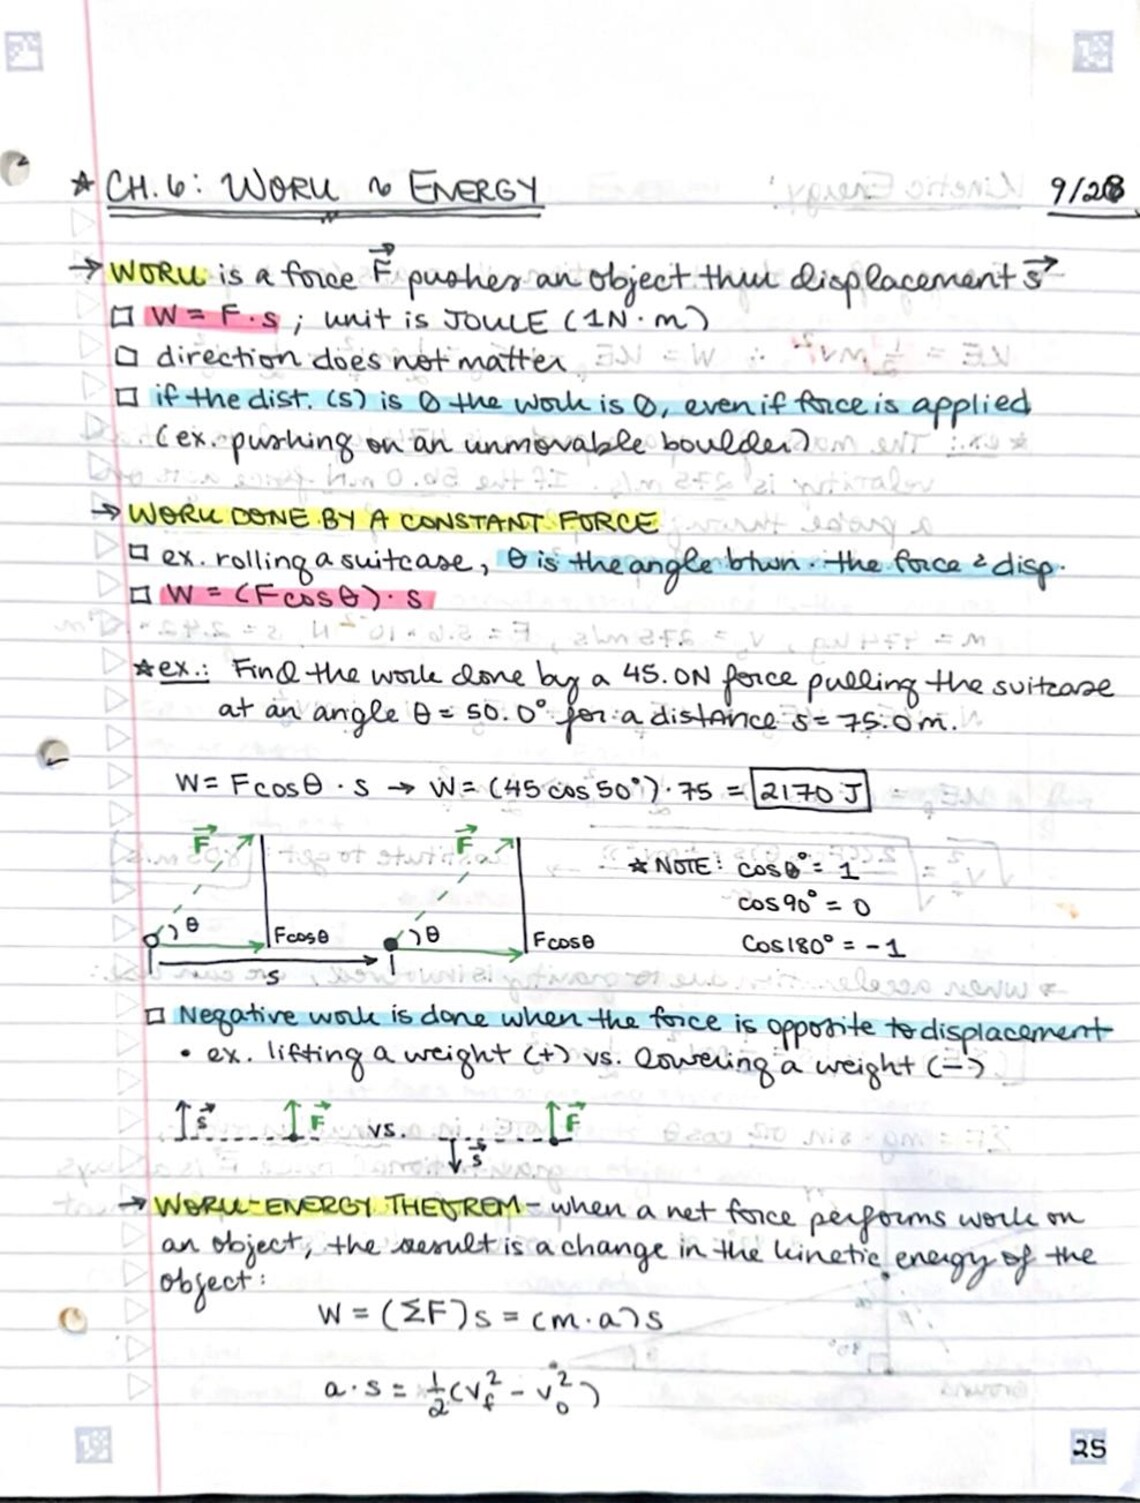 ★ CH. 6: WORK ~ ENERGY 9/28
→ WORK is a force F pushes an object thru displacement s
□ W = F · s ; unit is JOULE (1N · m)
□ direction does not matter
□ if the dist. (s) is 0 the work is 0, even if force is applied
(ex. pushing on an unmovable boulder)
→ WORK DONE BY A CONSTANT FORCE
□ ex. rolling a suitcase, θ is the angle btwn. the force & disp.
□ W = (Fcosθ) · s
★ ex.: Find the work done by a 45.0N force pulling the suitcase
at an angle θ = 50.0° for a distance s = 75.0m.
W = Fcosθ · s → W = (45 cos 50°) · 75 = 2170 J
F F ★ NOTE: cos0° = 1
cos90° = 0
θ Fcosθ θ Fcosθ cos180° = -1
s
□ Negative work is done when the force is opposite to displacement
• ex. lifting a weight (+) vs. lowering a weight (-)
s F vs. s F
→ WORK-ENERGY THEOREM - when a net force performs work on
an object, the result is a change in the kinetic energy of the
object:
W = (ΣF)s = (m·a)s
a·s = 1/2(v_f² - v_0²)
25